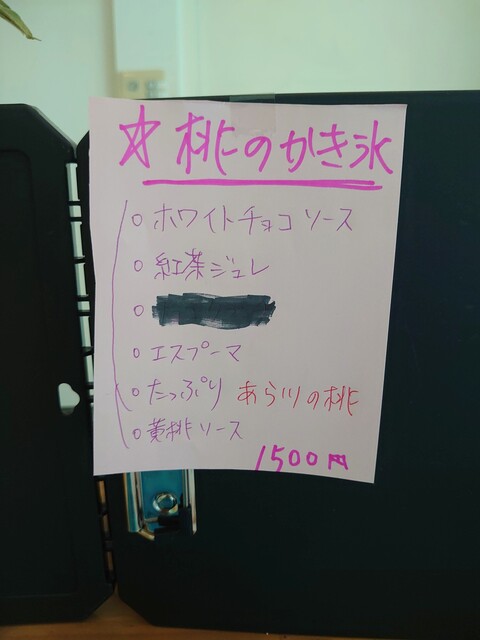 ☆ 桃のかき氷
○ ホワイトチョコソース
○ 紅茶ジュレ
○
○ エスプーマ
○ たっぷり あら川の桃
○ 黄桃ソース
1500円